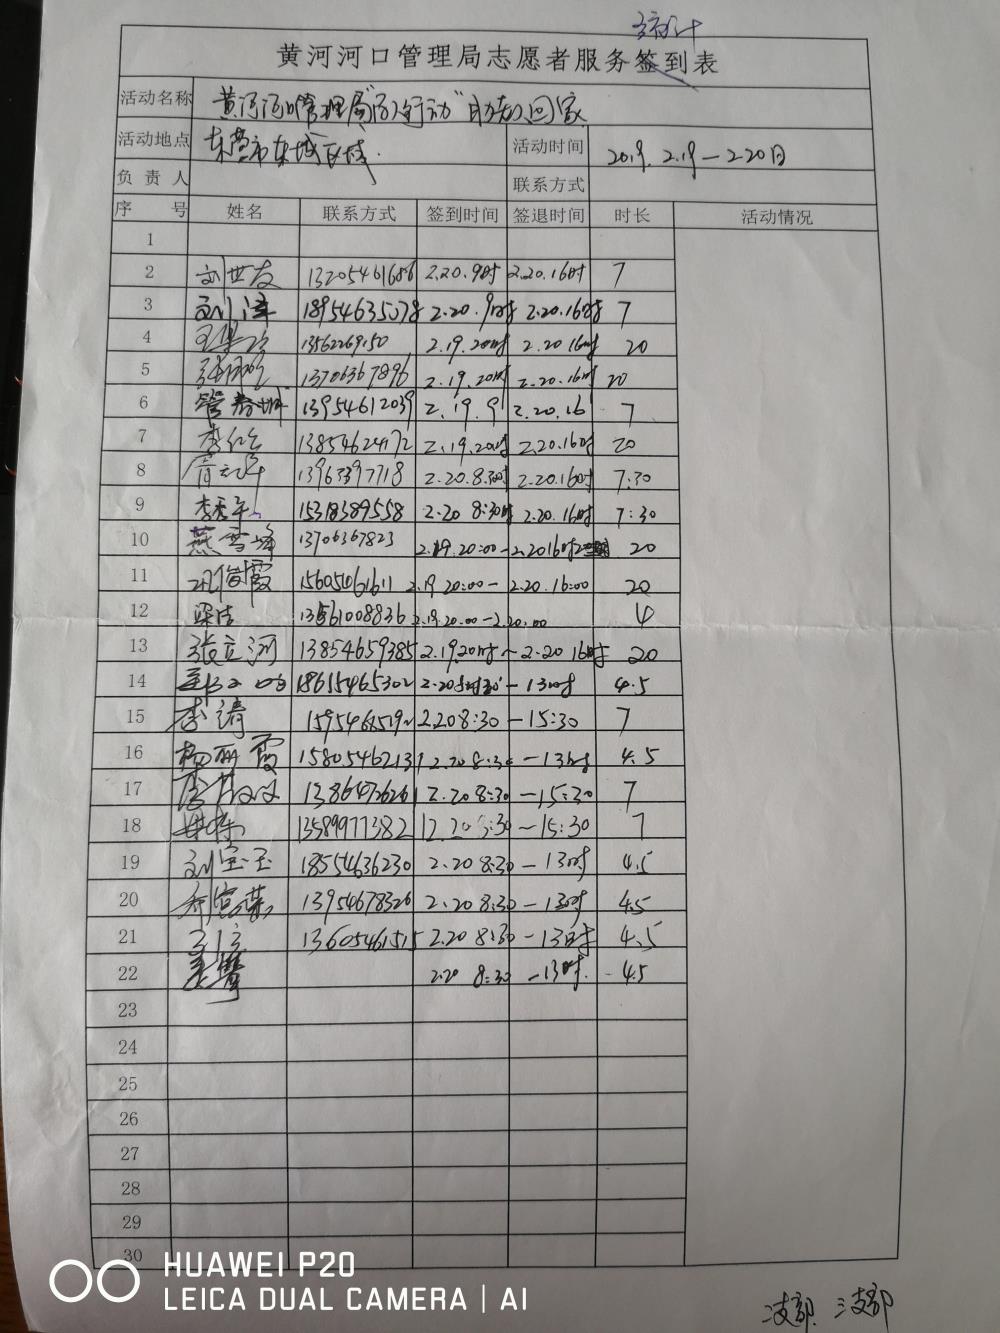 统计
黄河河口管理局志愿者服务签到表
活动名称 黄河河口管理局"行动"助回家
活动地点 东营市东城区域. 活动时间 2019.2.19-2.20日
负责人 联系方式
序号 姓名 联系方式 签到时间 签退时间 时长 活动情况
1
2 刘世友 13205461686 2.20.9时 2.20.16时 7
3 刘泽 18954635078 2.20.9时 2.20.16时 7
4 13562269150 2.19.20时 2.20 16时 20
5 13706367896 2.19.20时 2.20.16时 20
6 管春城 13954612039 2.19.9 2.20.16 7
7 李红 13854624172 2.19.20时 2.20.16时 20
8 13963397718 2.20.8.30时 2.20.16时 7:30
9 李秀平 15318389558 2.20 8:30时 2.20.16时 7:30
10 燕雪峰 13706367823 2.19.20:00-2.20 16时 20
11 巩俊霞 15605461611 2.19 20:00-2.20.16:00 20
12 梁洁 13561008836 2.19.20.00-2.20.00 4
13 张立河 13854659385 2.19.20时~2.20 16时 20
14 18615465302 2.20 8时30-13时 4.5
15 李靖 2.20 8:30-15:30 7
16 杨丽霞 15805462131 2.20 8:30-13时 4.5
17 13864726261 2.20 8:30-15:30 7
18 13589977382 2.20 8:30-15:30 7
19 刘宝玉 18554636230 2.20 8:30-13时 4.5
20 13954678326 2.20 8:30-13时 4.5
21 13605461515 2.20 8:30-13时 4.5
22 2.20 8:30-13时. 4.5
23
24
25
26
27
28
29
30
HUAWEI P20
LEICA DUAL CAMERA | AI
二支部 三支部